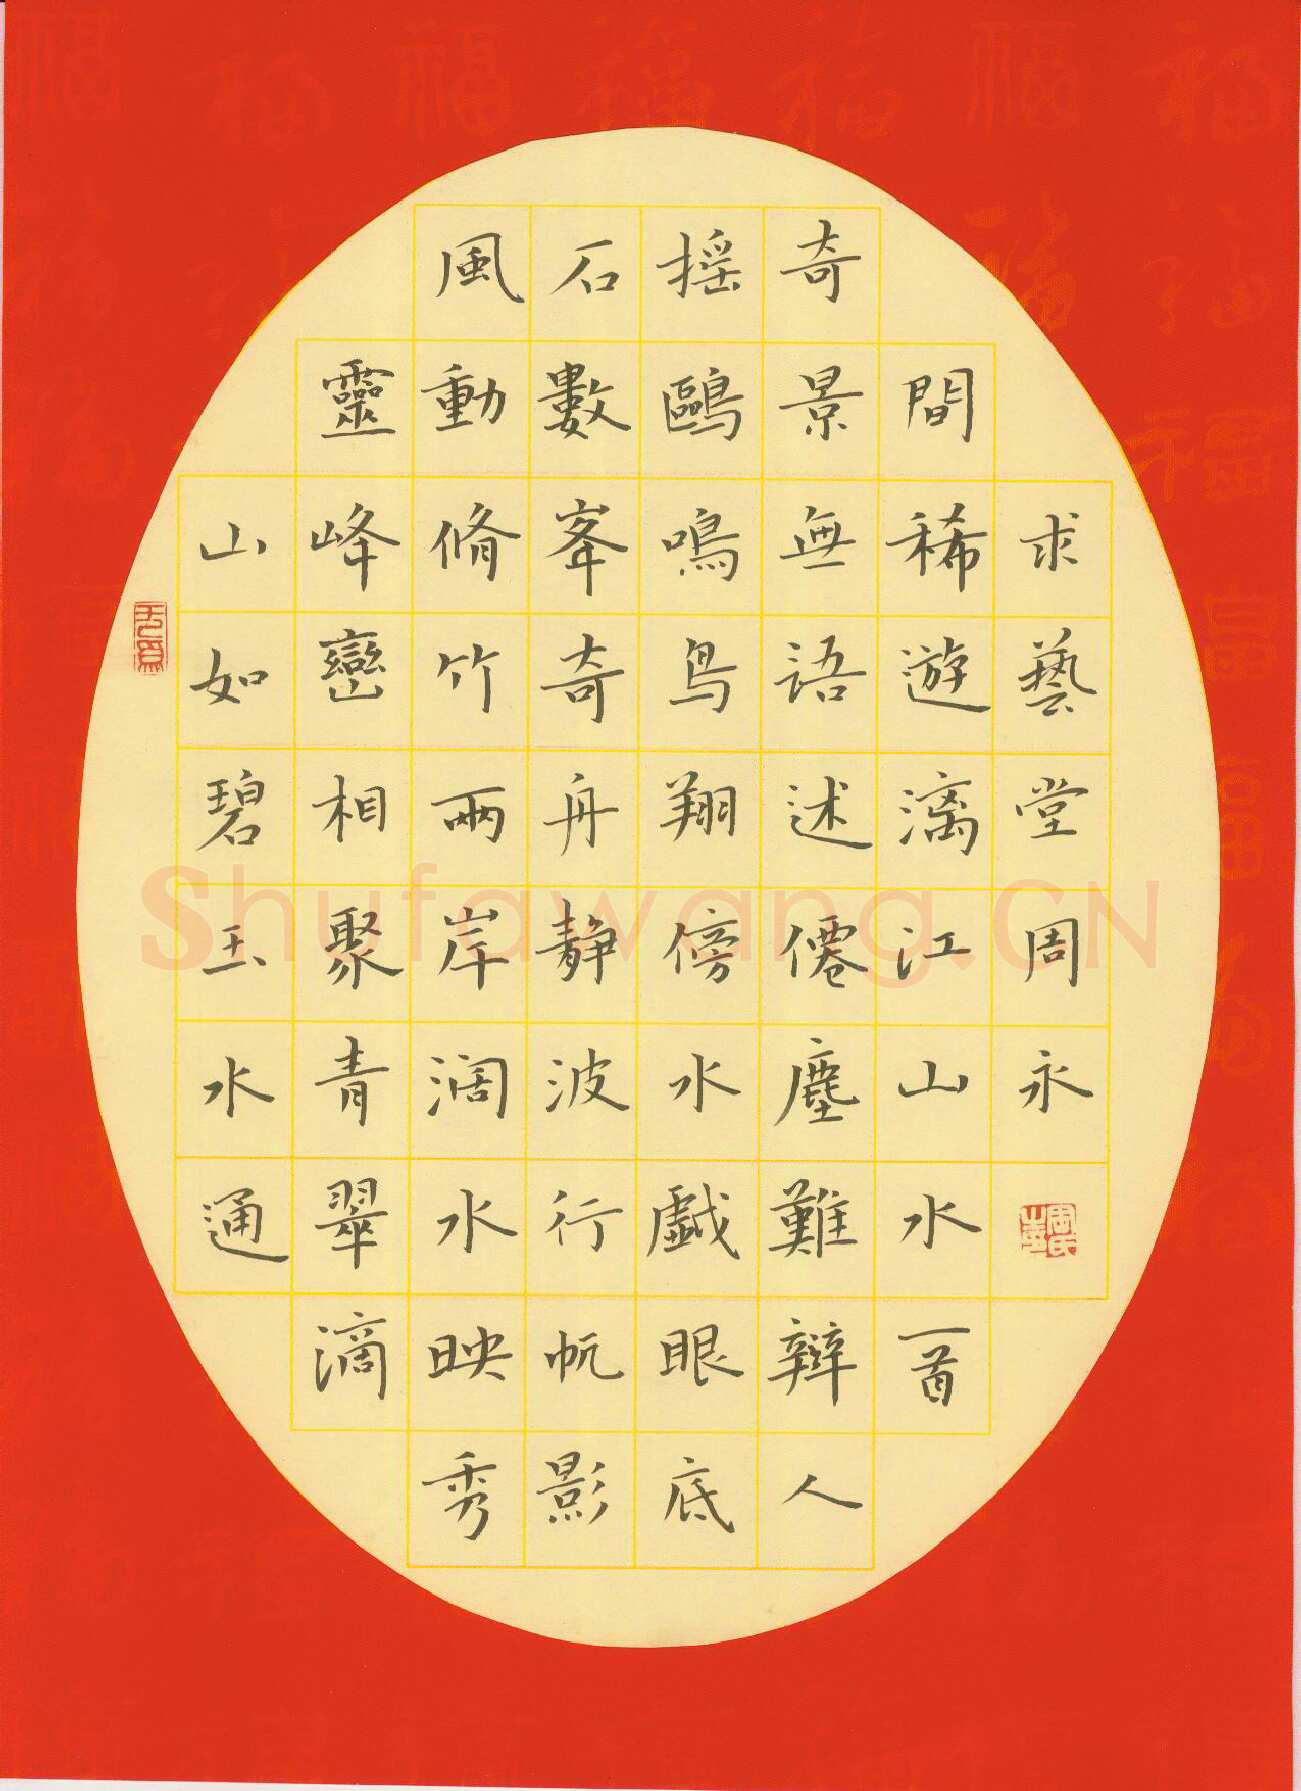 山如碧玉水通
靈峰巒相聚青翠滴
風動脩竹兩岸濶水映秀
石數峯奇舟静波行帆影
摇鷗鳴鳥翔傍水戲眼底
奇景無語述僊塵難辯人
間稀遊漓江山水一首
求藝堂周永
Shufawang.CN